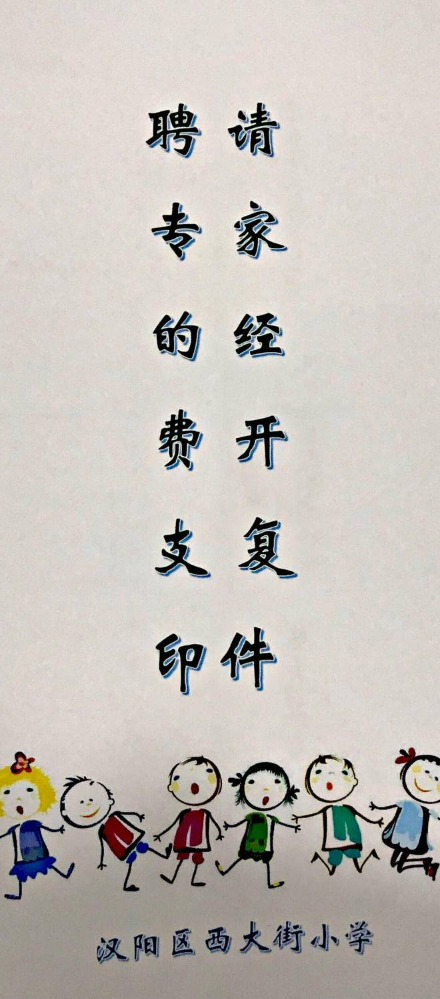 聘请
专家
的经
费开
支复
印件
汉阳区西大街小学